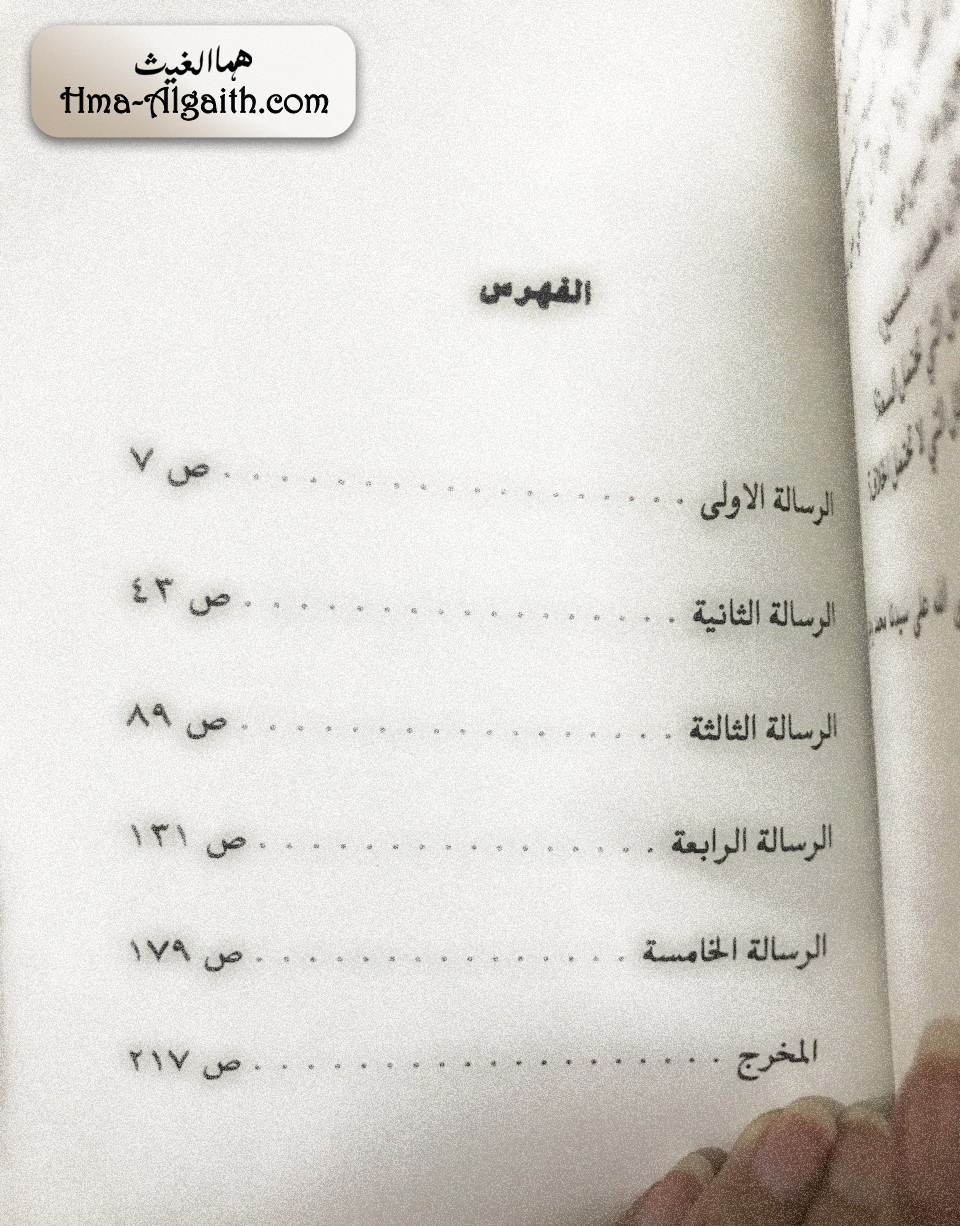 هماالغيث
Hma-Algaith.com
الفهرس
الرسالة الاولى . . . . . . . . . . . . . . . . . ص ٧
الرسالة الثانية . . . . . . . . . . . . . . . . ص ٤٣
الرسالة الثالثة . . . . . . . . . . . . . . . . ص ٨٩
الرسالة الرابعة . . . . . . . . . . . . . . . ص ١٣١
الرسالة الخامسة . . . . . . . . . . . . . . ص ١٧٩
المخرج . . . . . . . . . . . . . . . . . . ص ٢١٧